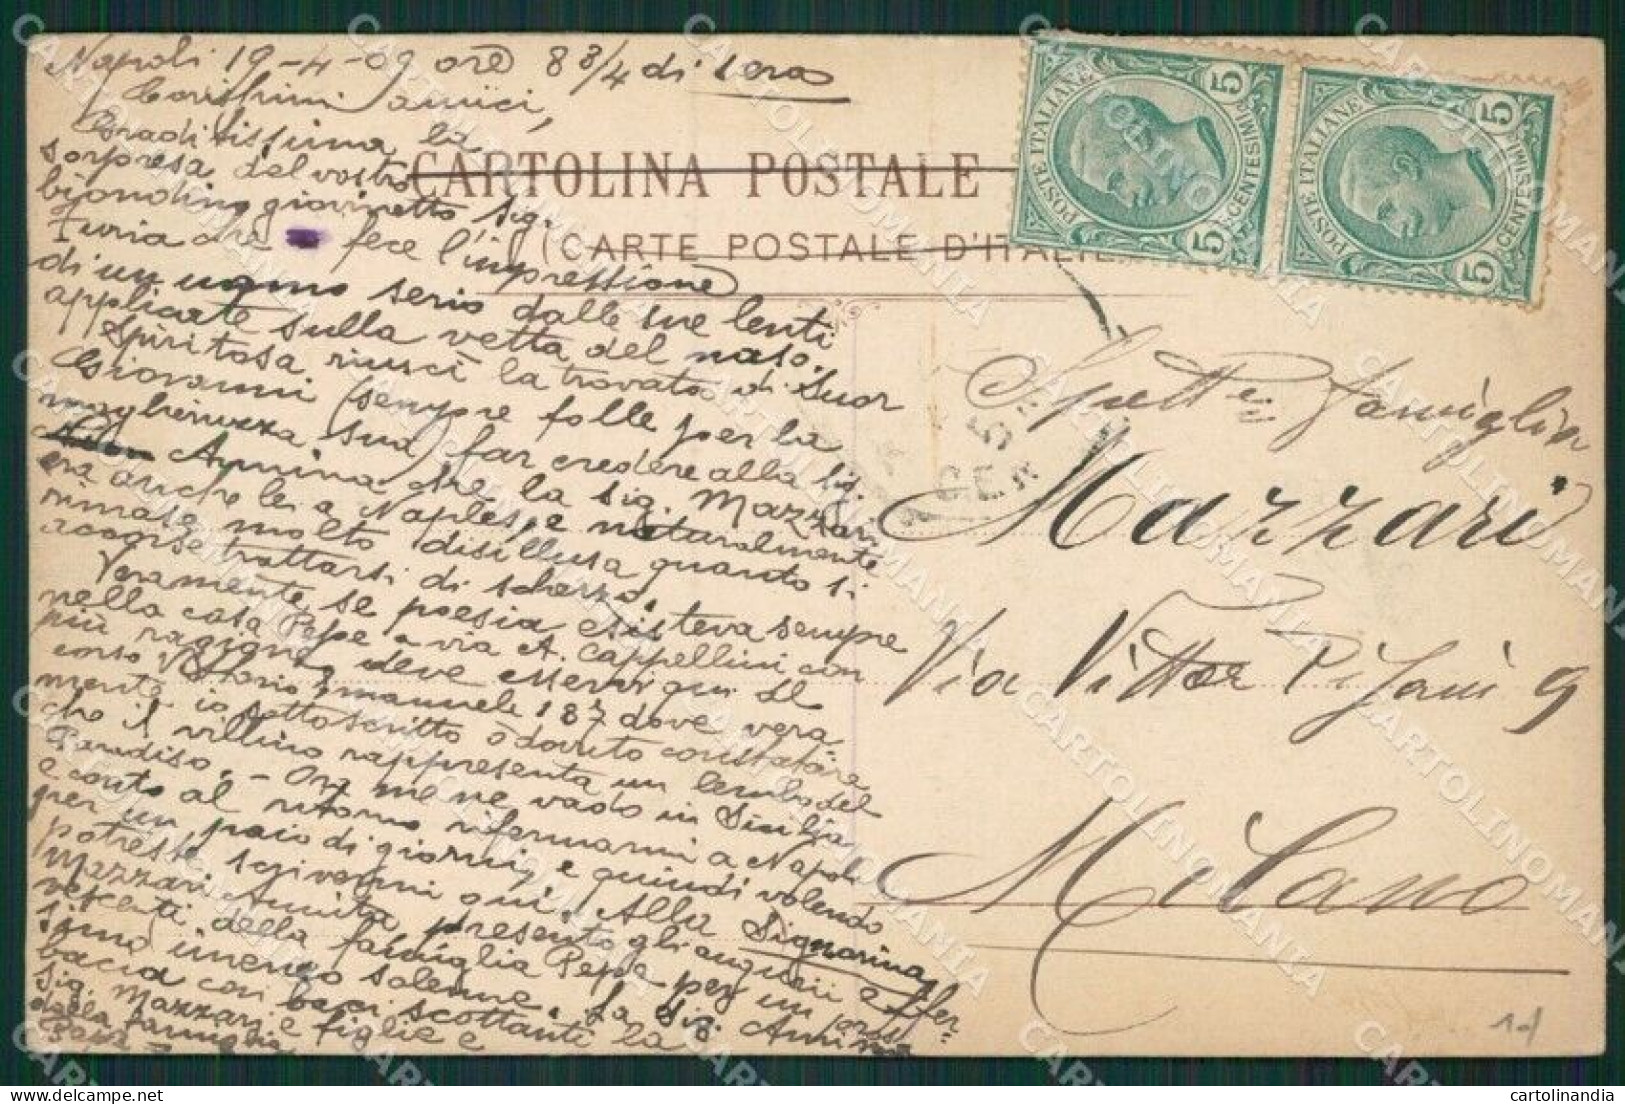 Napoli 19-4-09 ore 8 3/4 di sera
Carissimi amici,
Graditissima la
sorpresa del vostro
biondino giovinetto, sig.
Furia che fece l'impressione
di un uomo serio dalle sue lenti
applicate sulla vetta del naso.
Spiritosa riuscì la trovata di Suor
Giovanni (sempre folle per la
magherezza sua) far credere alla sig.
Annina che la sig. Mazzari
era anche lei a Naples, e naturalmente
rimase molto disillusa quanto si
accorse trattarsi di scherzo.
Veramente se poesia esisteva sempre
nella casa Pepe a via A. Cappellini con
più ragione deve esservi qui al
corso Vittorio Emanuele 187 dove vera-
mente io sottoscritto ò dovuto constatare
che il villino rappresenta un lembo del
Paradiso. - Ora me ne vado in Sicilia
e conto al ritorno rifermarmi a Napoli
per un paio di giorni, e quindi volendo
potreste scrivermi qui. Alla Signorina
Mazzari Annita presento gli augurii effer-
vescenti della famiglia Pepe per un
simo immenso solenne. La sig. Annina
bacia con baci scottanti la
sig. Mazzari e figlie e
dalla famiglia
Pepe
CARTOLINA POSTALE
(CARTE POSTALE D'ITALIE
POSTE ITALIANE
5 CENTESIMI 5
POSTE ITALIANE
5 CENTESIMI 5
Spett.e Famiglia
Mazzari
Via Vittor Pisani 9
Milano
CARTOLINOMANIA
cartolinandia